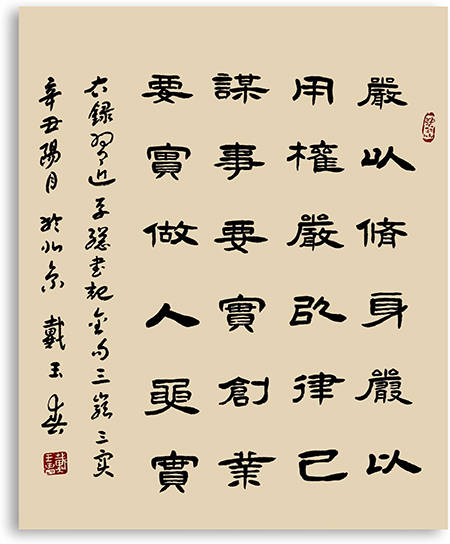 嚴以脩身嚴以
用權嚴以律己
謀事要實創業
要實做人要實
右録習近平總書記金句三嚴三实
辛丑陽月於北京戴玉